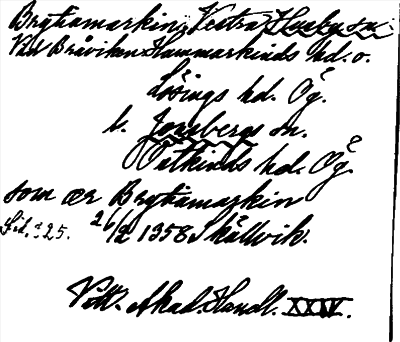 Brytiamarkin, Vestra Husby sn
Vid Bråviken Hammarkinds hd. o.
Lösings hd. Ög.
l. Jonsbergs sn.
Östkinds hd. Ög.
som ær Brytiamarkin
Sid. 225. 26/2 1358 Skällvik.
Vitt. Akad. Handl. XXIX.